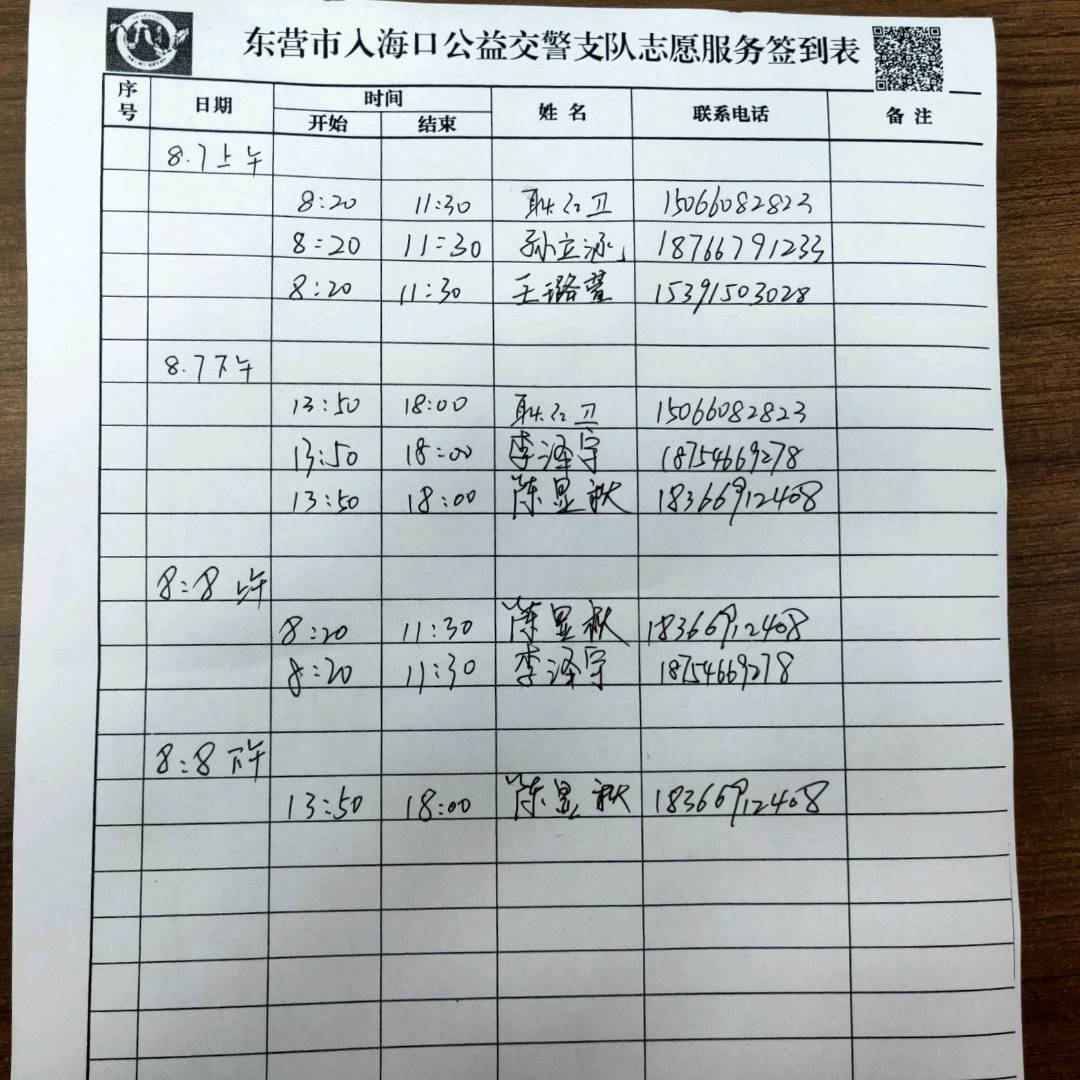 东营市入海口公益交警支队志愿服务签到表
序号 日期 时间 姓名 联系电话 备注
开始 结束
8.7上午
8:20 11:30 耿红卫 15066082823
8:20 11:30 孙立涵 18766791233
8:20 11:30 王璐萱 15391503028
8.7下午
13:50 18:00 耿红卫 15066082823
13:50 18:00 李泽宇 18754669278
13:50 18:00 陈昱秋 18366912408
8:8 上午
8:20 11:30 陈昱秋 18366912408
8:20 11:30 李泽宇 18754669278
8:8 下午
13:50 18:00 陈昱秋 18366912408